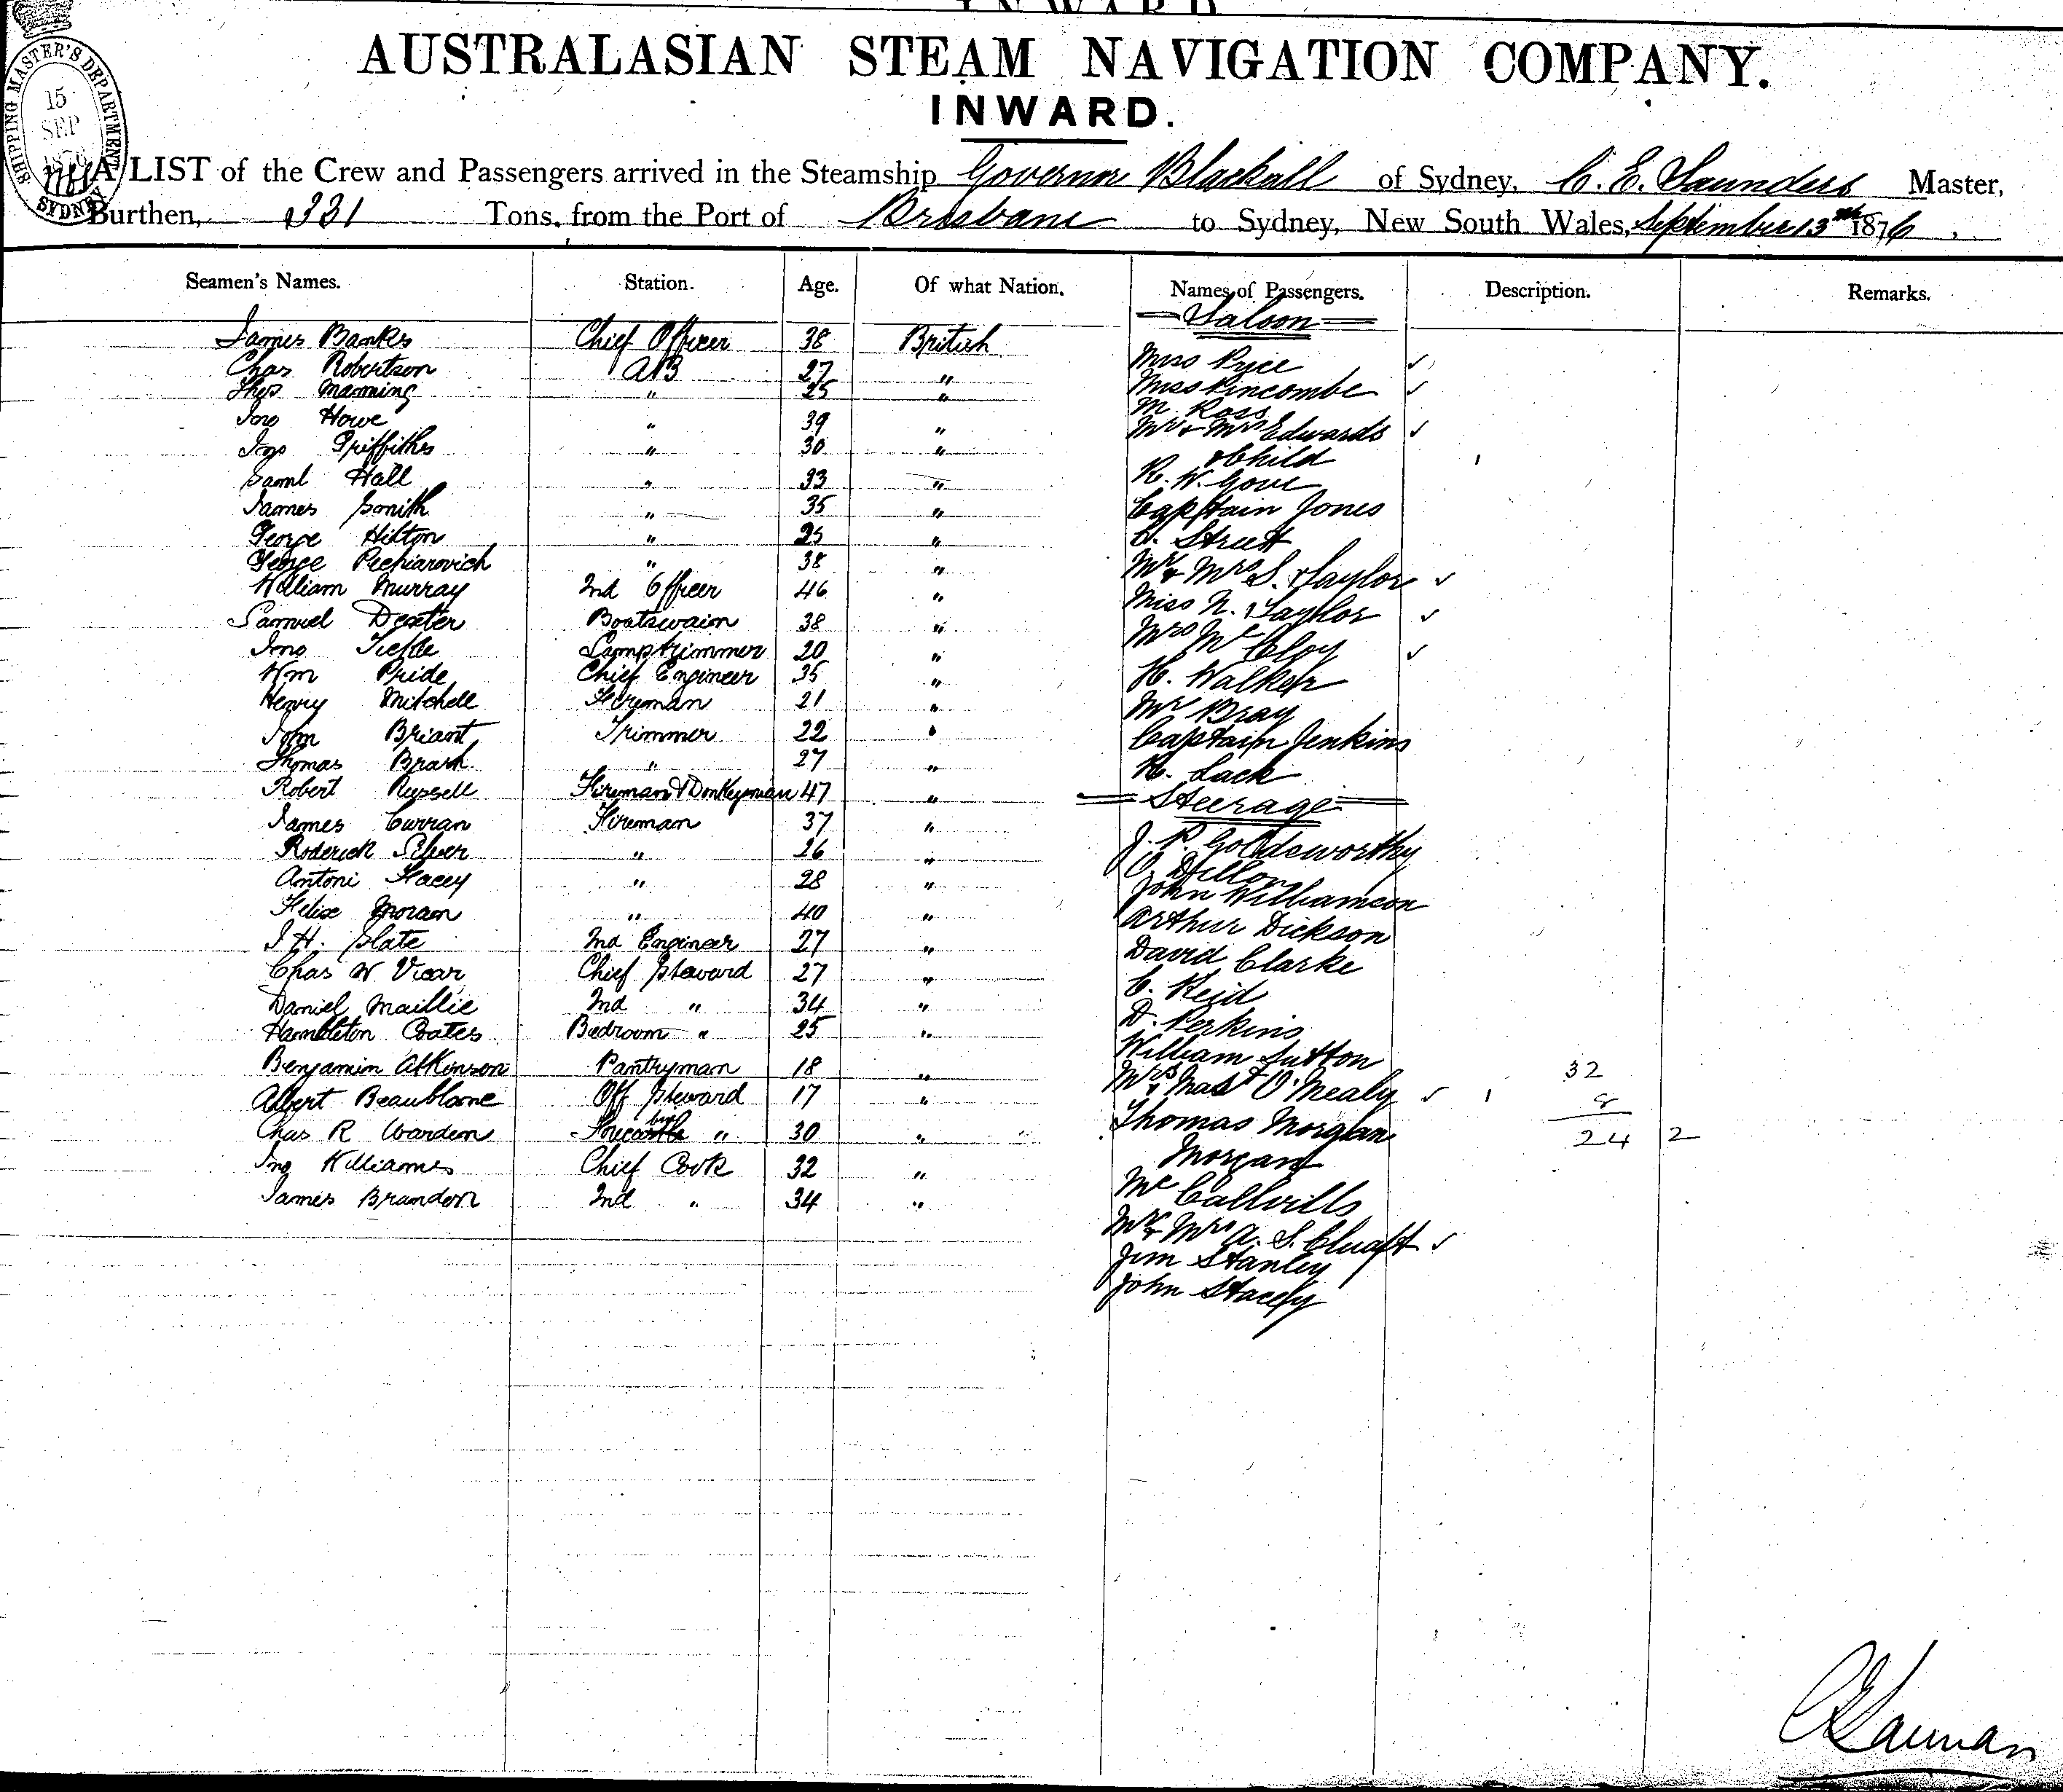 AUSTRALASIAN STEAM NAVIGATION COMPANY.
INWARD.
SHIPPING MASTER'S DEPARTMENT
15
SEP
1876
SYDNEY
A LIST of the Crew and Passengers arrived in the Steamship Governor Blackall of Sydney, C. E. Saunders Master,
Burthen, 331 Tons, from the Port of Brisbane to Sydney, New South Wales, September 13th 1876
Seamen's Names. Station. Age. Of what Nation. Names of Passengers. Description. Remarks.
James Bankes Chief Officer 38 British
Chas Robertson AB 27 "
Thos Manning " 25 "
Jno Howe " 39 "
Jno Griffiths " 30 "
Saml Hall " 33 "
James Smith " 35 "
George Hilton " 25 "
George " 38 "
William Murray 2nd Officer 46 "
Samuel Dexter Boatswain 38 "
Jno Lamptrimmer 20 "
Wm Pride Chief Engineer 35 "
Henry Mitchell Fireman 21 "
John Briant Trimmer 22 "
Thomas Brash " 27 "
Robert Russell Fireman & Donkeyman 47 "
James Curran Fireman 37 "
Roderick Silver " 26 "
Antoni Stacey " 28 "
Felix Moran " 40 "
J H. Slate 2nd Engineer 27 "
Chas W Vicar Chief Steward 27 "
Daniel Maillie 2nd " 34 "
Hambleton Coates Bedroom " 25 "
Benjamin Atkinson Pantryman 18 "
Albert Off Steward 17 "
Chas R Warden " 30 "
Jno Williams Chief Cook 32 "
James Brandon 2nd " 34 "
Saloon
Miss Pyce
Miss Pincombe
M. Ross
Mr & Mrs Edwards
& Child
R. W. Gove
Captain Jones
Strutt
Mr & Mrs S. Taylor
Miss N. Taylor
Mrs McCloy
H. Walker
Mr Bray
Captain Jenkins
H. Lack
Steerage
J. P. Goldsworthy
O. Dillon
John Williamson
Arthur Dickson
David Clarke
C. Reid
D. Perkins
William Sutton
Mrs & Mast O'Mealy
Thomas Morgan
Morgan
Mr & Mrs A. S.
Jim Stanley
John Stacey
32
8
24 2